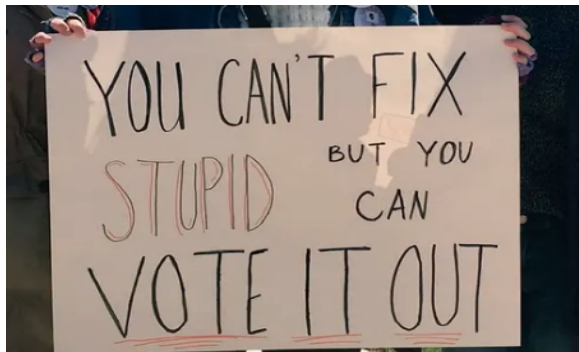 YOU CAN'T FIX
STUPID BUT YOU
CAN
VOTE IT OUT